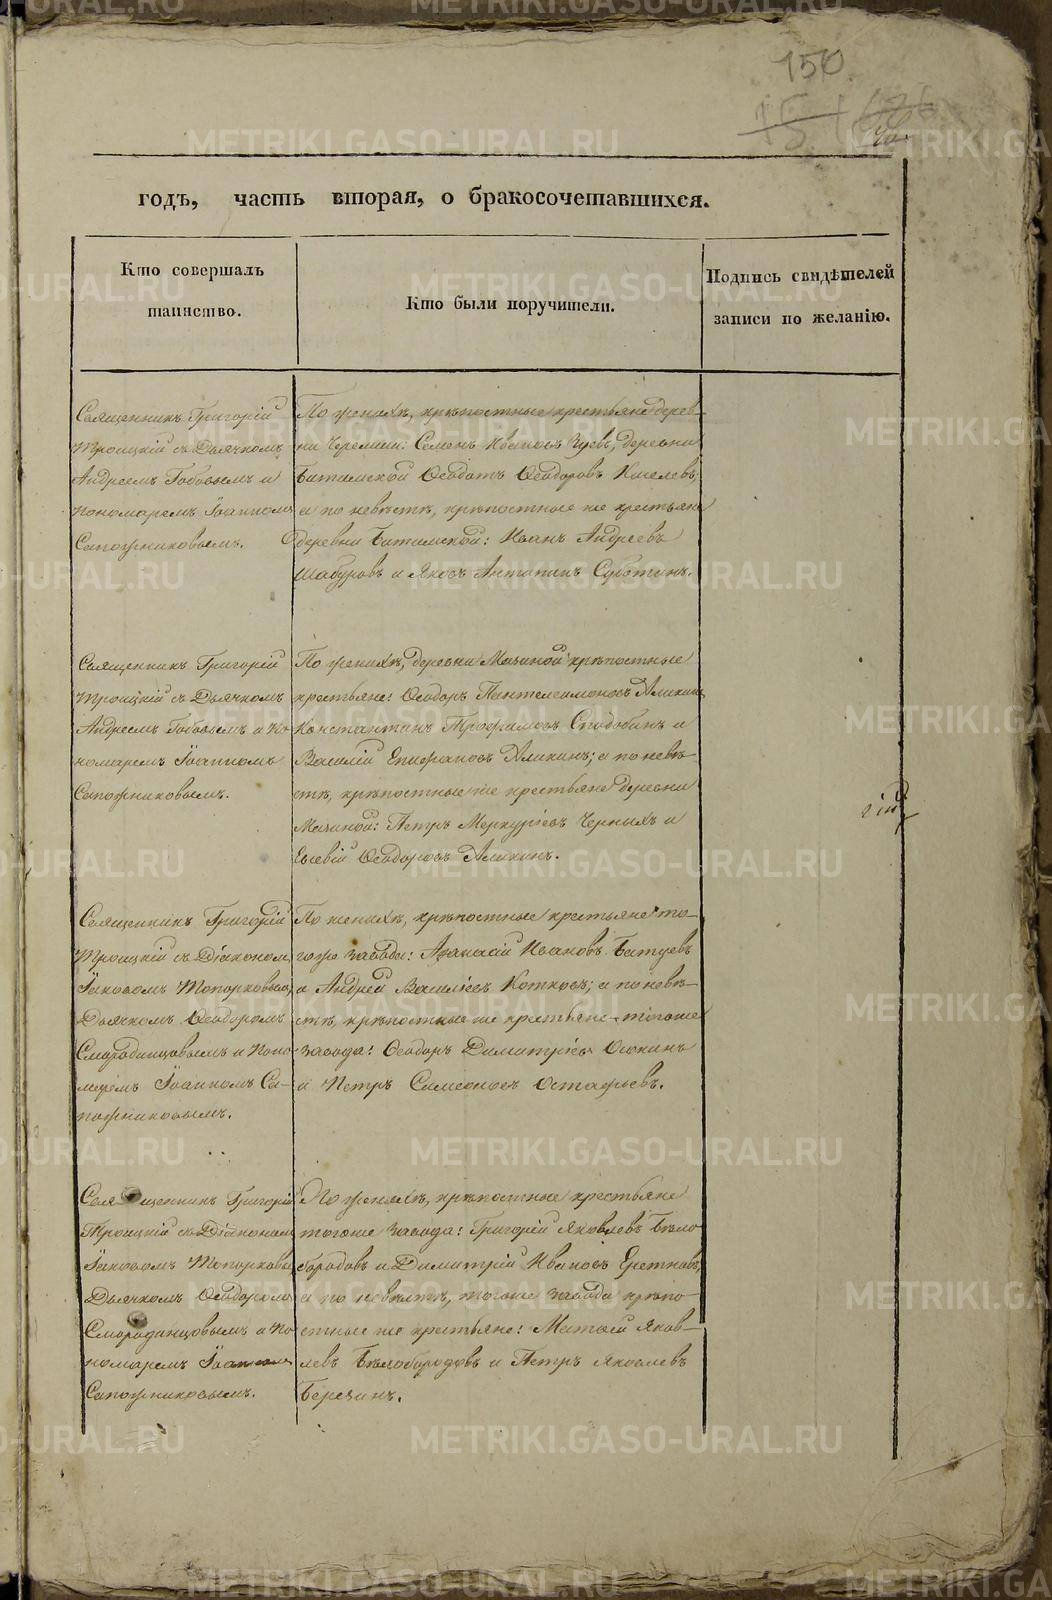 150.
годъ, часть вторая, о бракосочетавшихся.
Кто совершалъ
таинство.
Кто были поручители.
Подпись свидѣтелей
записи по желанію.
Священникъ Григорій
Троицкій съ Дьячкомъ
Андреемъ Бабовымъ и
пономаремъ Іоанномъ
Сапожниковымъ.
По женихѣ, крѣпостные крестьяне дерев-
ни Черемши: Семенъ Ивановъ Зуевъ, деревни
Битимской Ѳеодотъ Ѳеодоровъ Киселевъ,
а по невѣстѣ, крѣпостные же крестьяне
деревни Битимской: Иванъ Андреевъ
Шабуровъ и Яковъ Антипинъ Суботинъ.
Священникъ Григорій
Троицкій съ Дьячкомъ
Андреемъ Бабовымъ и по-
номаремъ Іоанномъ
Сапожниковымъ.
По женихѣ, деревни Мачиной крѣпостные
крестьяне: Ѳеодоръ Пантелеимоновъ Аликинъ
Константинъ Трофимовъ Сподобинъ и
Василій Епифановъ Аликинъ; а по невѣ-
стѣ, крѣпостные же крестьяне деревни
Мачиной: Петръ Меркурьевъ Черныхъ и
Евсевій Ѳеодоровъ Аликинъ.
Священникъ Григорій
Троицкій съ Діакономъ
Іаковомъ Топорковымъ,
Дьячкомъ Ѳеодоромъ
Смородинцовымъ и Поно-
маремъ Іоанномъ Са-
пожниковымъ.
По женихѣ, крѣпостные крестьяне то-
гоже завода: Афанасій Ивановъ Батуевъ
и Андрей Василіевъ Котковъ; а по невѣ-
стѣ, крѣпостные же крестьяне тогоже
завода: Ѳеодоръ Димитріевъ Осокинъ
и Петръ Симеоновъ Остафьевъ.
Священникъ Григорій
Троицкій съ Діакономъ
Іаковомъ Топорковымъ
Дьячкомъ Ѳеодоромъ
Смородинцовымъ и По-
номаремъ Іоанномъ
Сапожниковымъ.
По женихѣ, крѣпостные крестьяне
тогоже завода: Григорій Яковлевъ Бѣло-
бородовъ и Димитрій Ивановъ Еретновъ,
а по невѣстѣ, тогоже завода крѣпо-
стные же крестьяне: Матвѣй Яков-
левъ Бѣлобородовъ и Петръ Яковлевъ
Березинъ.
METRIKI.GASO-URAL.RU